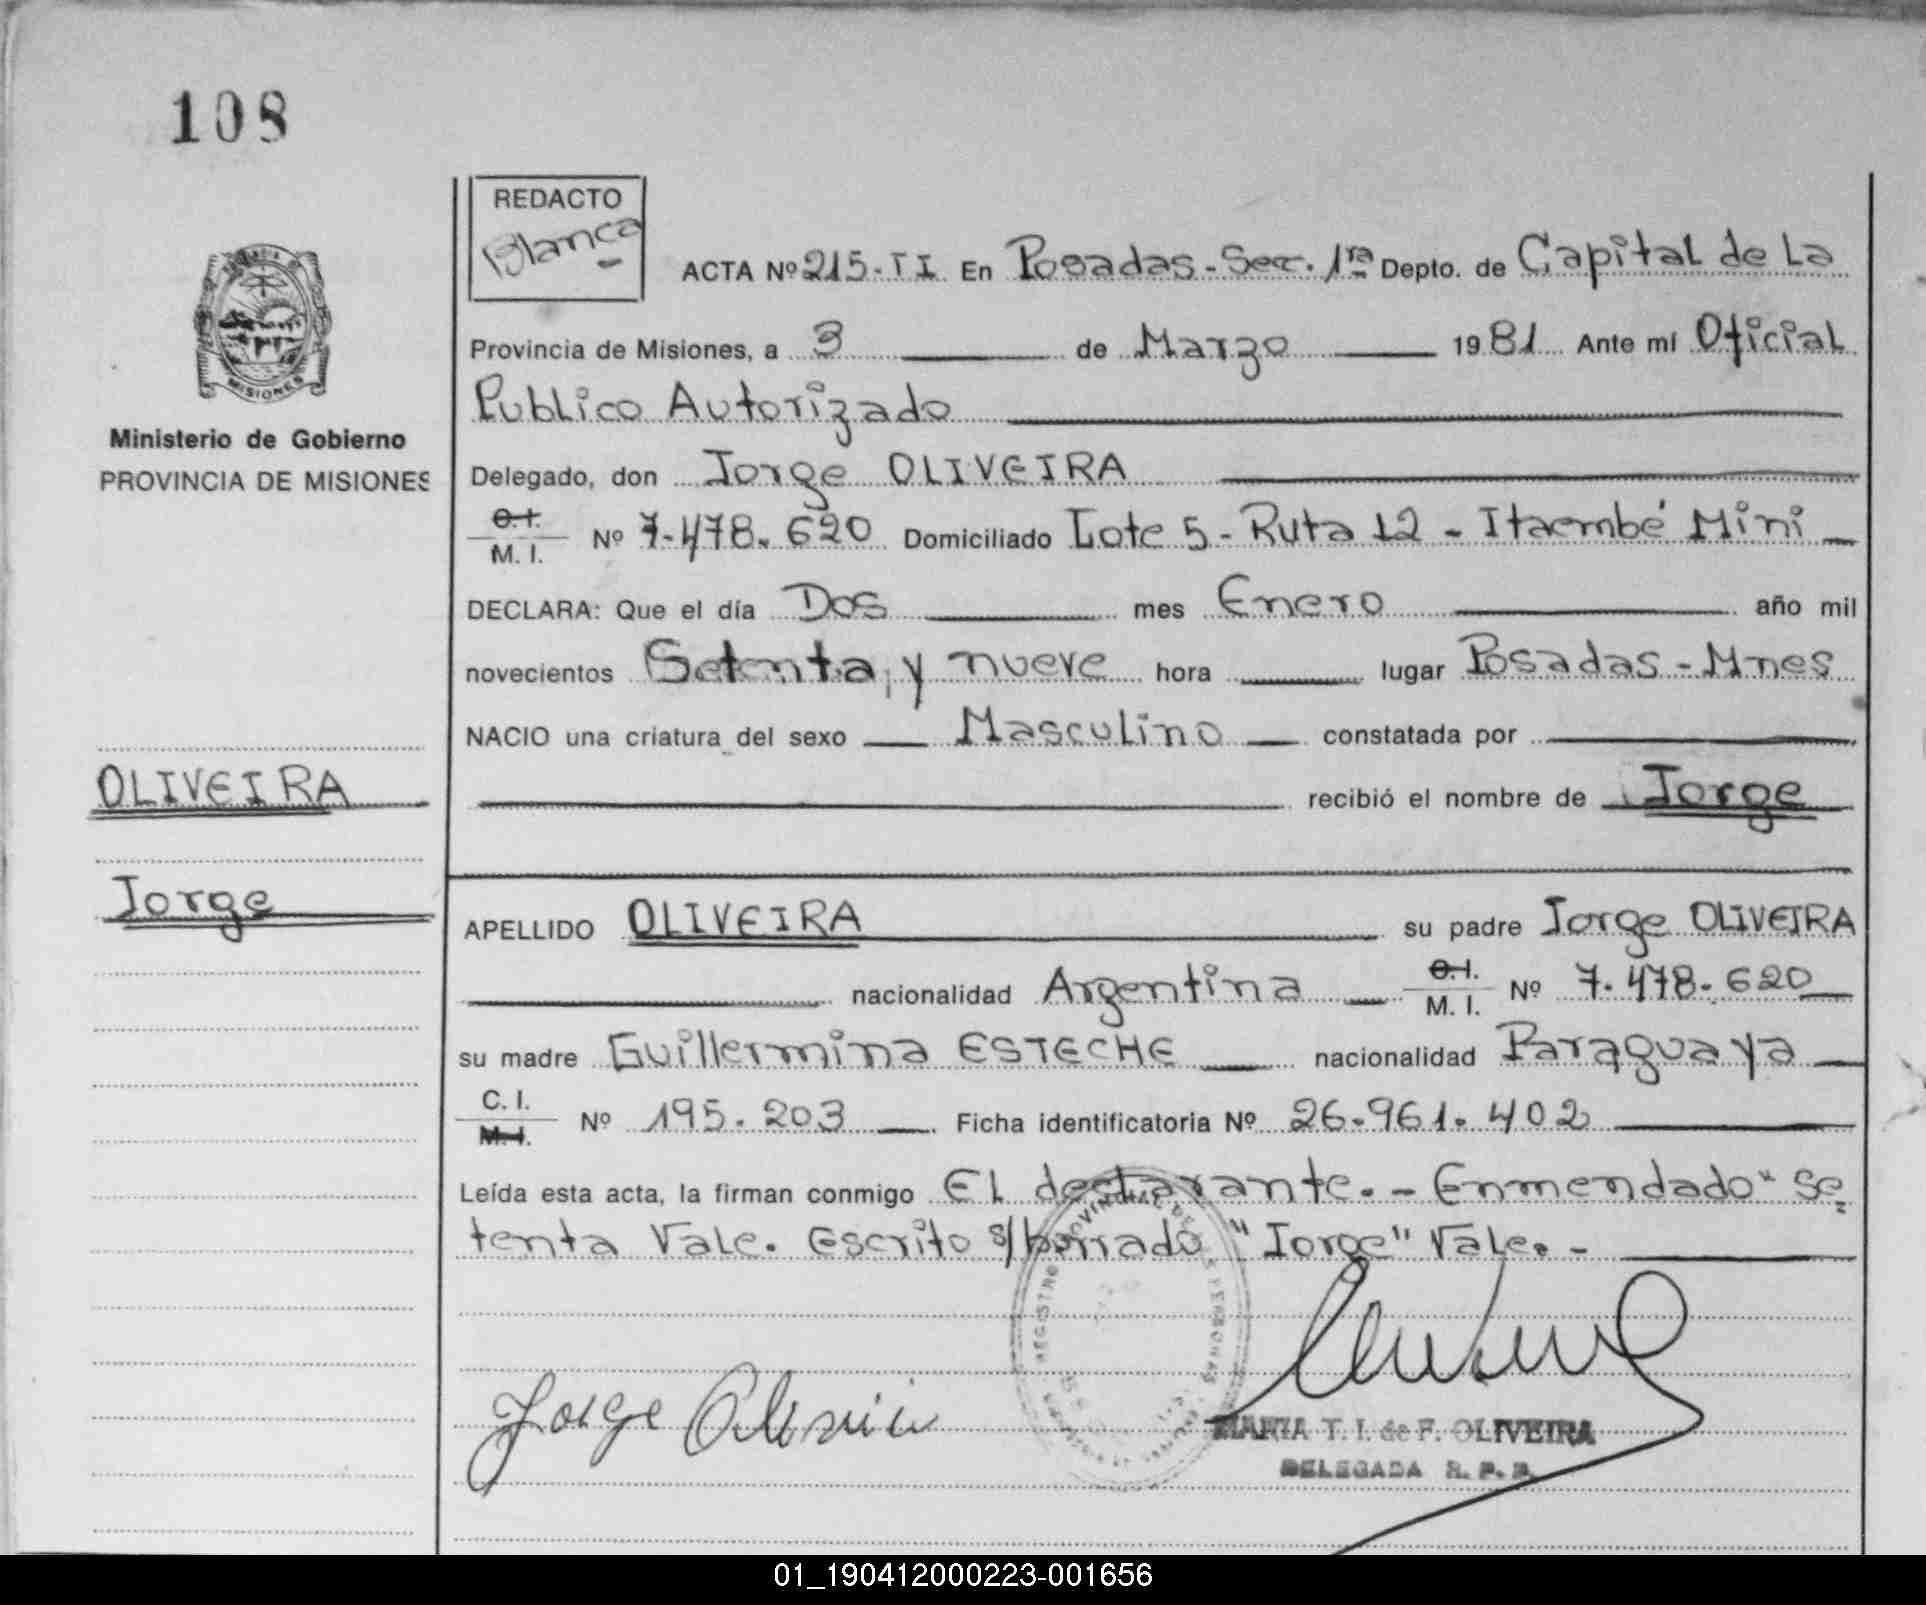 108
REDACTO
Blanca
ACTA Nº 215-TI En Posadas-Sec. 1ra Depto. de Capital de La
Provincia de Misiones, a 3 de Marzo 1981 Ante mí Oficial
Publico Autorizado
MISIONES
Ministerio de Gobierno
PROVINCIA DE MISIONES
Delegado, don Jorge OLIVEIRA
C.I. M.I. Nº 7.478.620 Domiciliado Lote 5 - Ruta 12 - Itaembé Mini
DECLARA: Que el día Dos mes Enero año mil
novecientos Setenta y nueve hora lugar Posadas-Mnes
NACIO una criatura del sexo Masculino constatada por
OLIVEIRA
recibió el nombre de Jorge
Jorge
APELLIDO OLIVEIRA su padre Jorge OLIVEIRA
nacionalidad Argentina C.I. M.I. Nº 7.478.620
su madre Guillermina ESTECHE nacionalidad Paraguaya
C.I. M.I. Nº 195.203 Ficha identificatoria Nº 26.961.402
Leída esta acta, la firman conmigo El declarante.- Enmendado "Se
tenta Vale. Escrito s/borrado "Jorge" Vale.-
REGISTRO PROVINCIAL DE LAS PERSONAS
Jorge Oliveira
MARIA T. I. de F. OLIVEIRA
DELEGADA R. P. P.
01_190412000223-001656